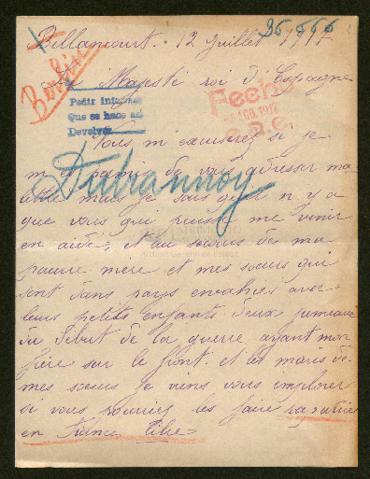 Billancourt. 12 Juillet 1917
36.666
Berlin
Sa Majesté roi d'Espagne
Pedir informes
Que se hace así
Devolver
Fecho
AGO. 1917
Vous m'excuserez si je
m'permis de vous adresser ma
lettre mais je sais qu'il n'y a
que vous qui puissiez me venir
en aide, et au secours de ma
pauvre mère et mes sœurs qui
sont dans pays envahies avec
leurs petits enfants deux jumeaux
Dubannoy
du début de la guerre ayant mon
frère sur le front. et les maris de
mes sœurs je viens vous implorer
si vous pourriez les faire rapatrier
en France libre